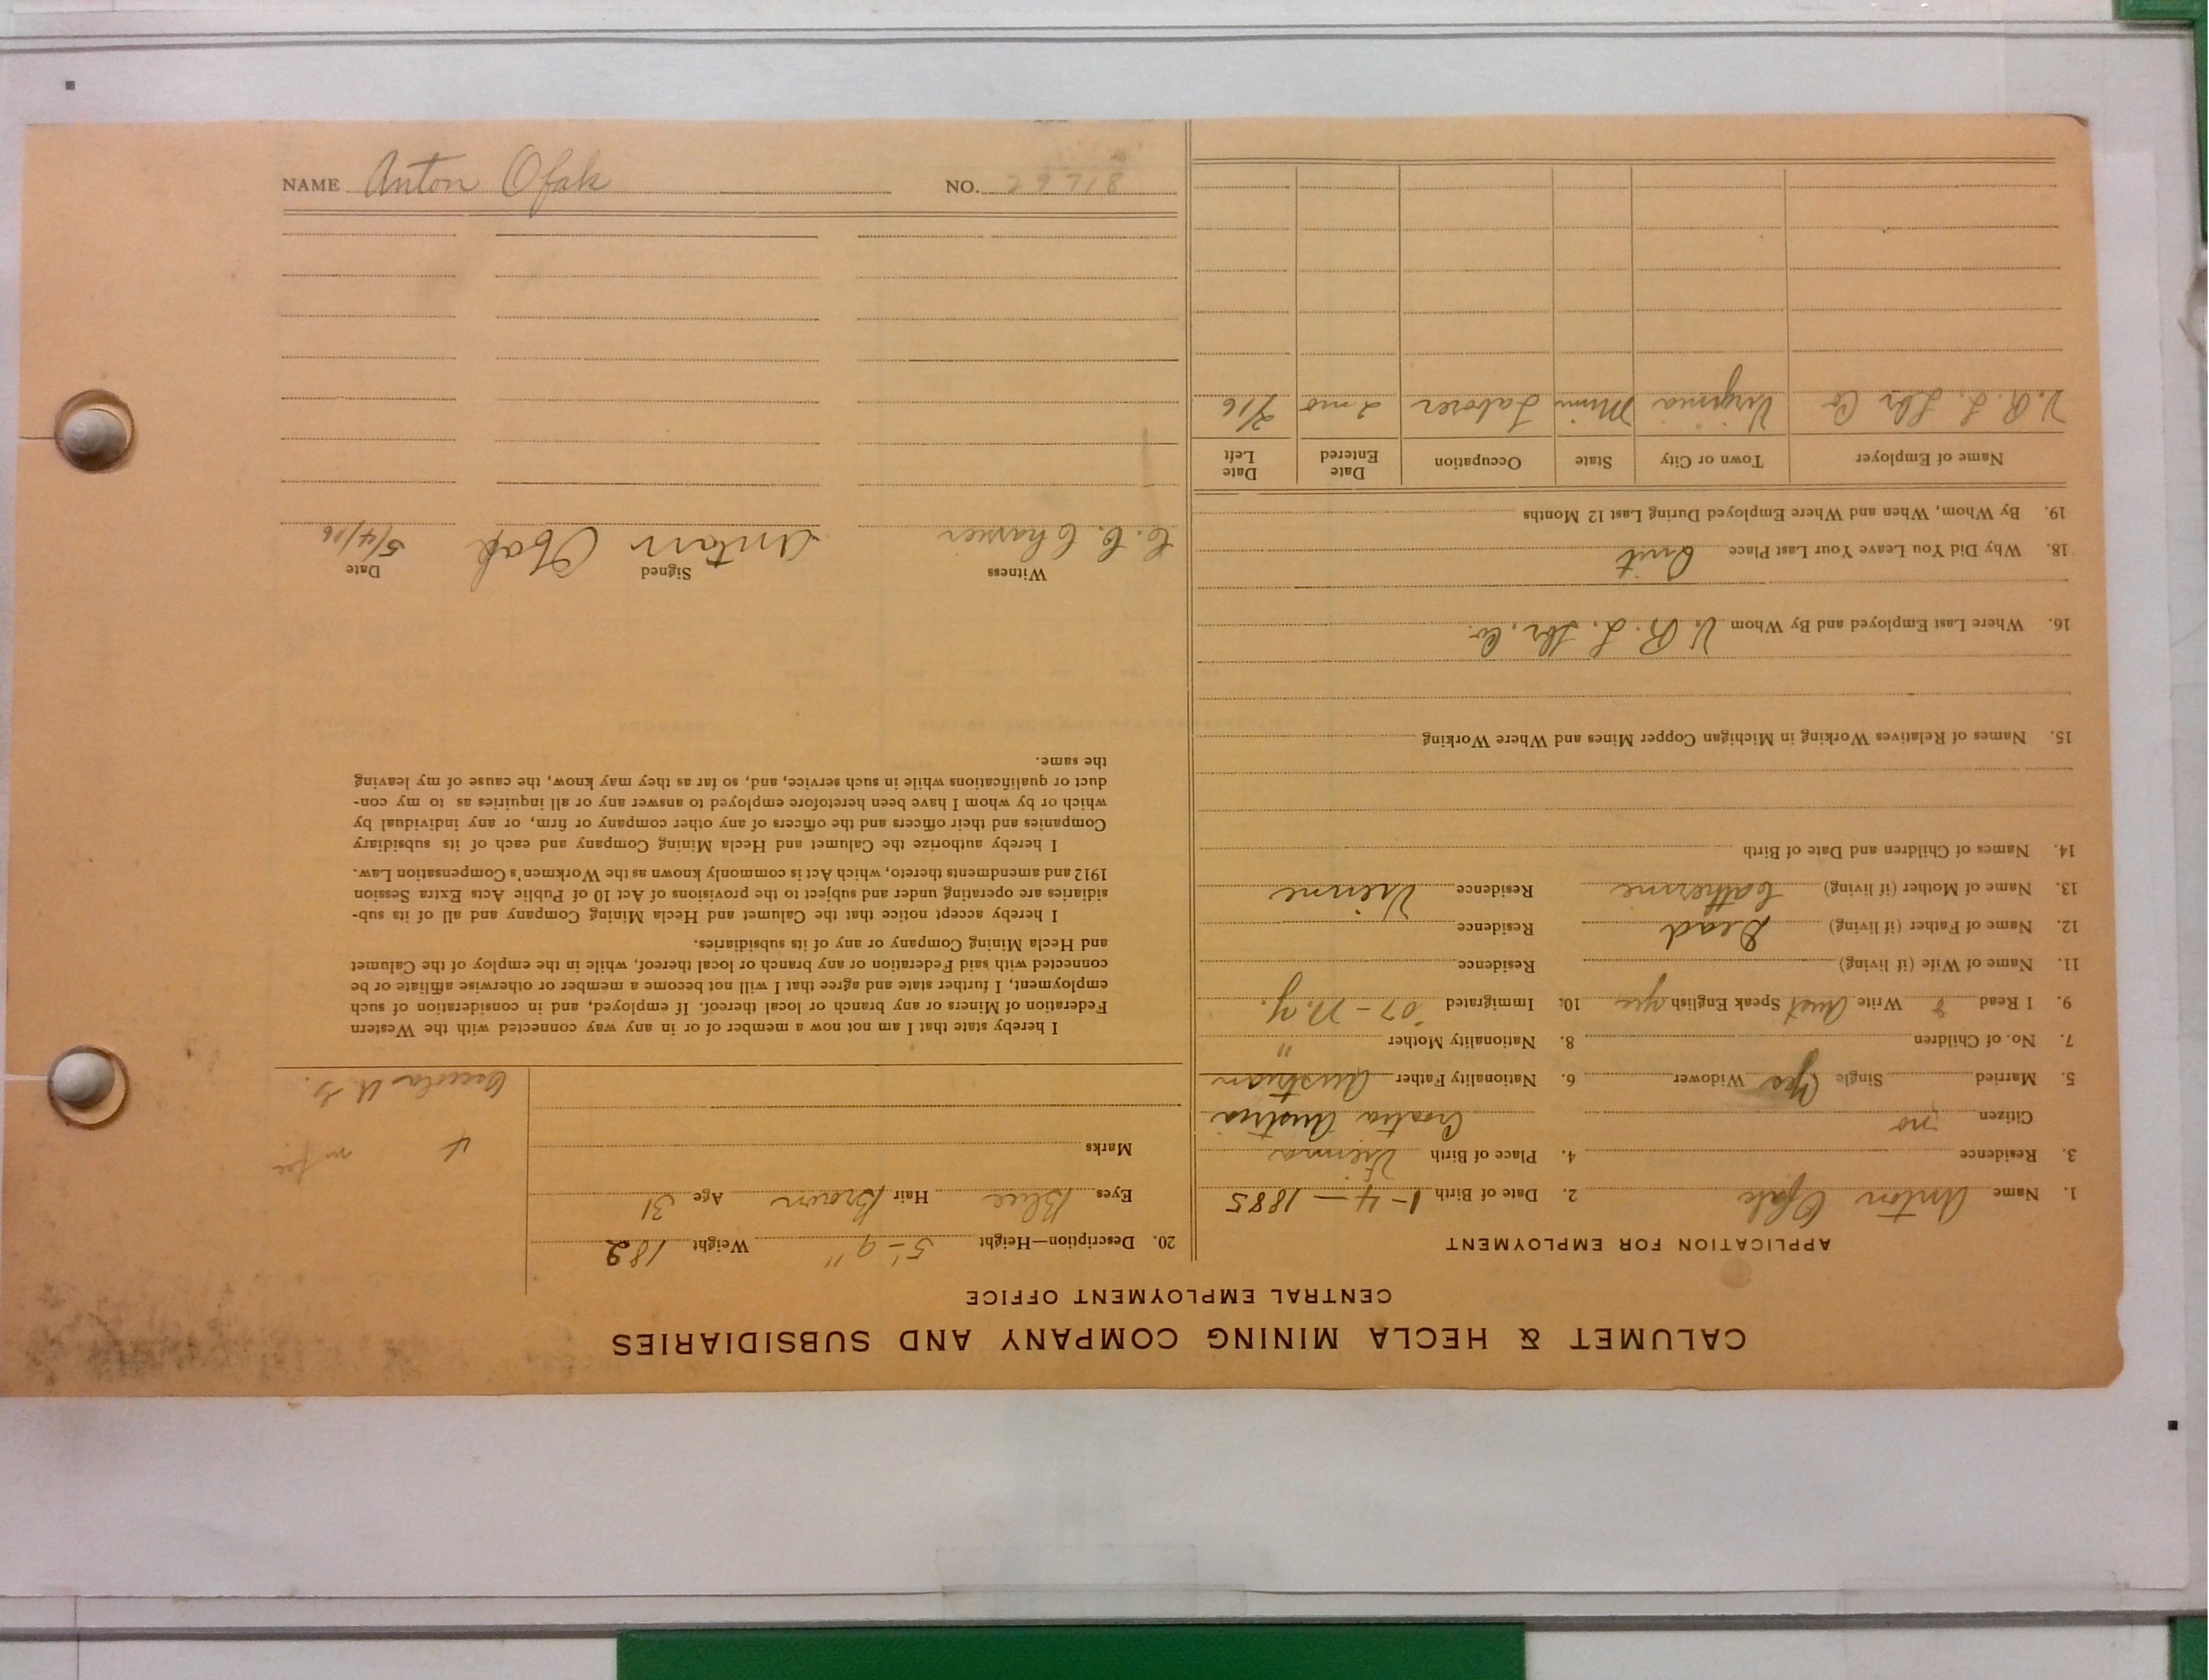 NAME Anton Ofak NO. 29718
CALUMET & HECLA MINING COMPANY AND SUBSIDIARIES
CENTRAL EMPLOYMENT OFFICE
APPLICATION FOR EMPLOYMENT
1. Name Anton Ofak 2. Date of Birth 1-4-1885
3. Residence 4. Place of Birth
Citizen no Croatia Austria
5. Married Single Yes Widower 6. Nationality Father Austrian
7. No. of Children 8. Nationality Mother "
9. I Read & Write Aust Speak English yes 10. Immigrated '07 - N.Y.
11. Name of Wife (if living) Residence
12. Name of Father (if living) Dead Residence
13. Name of Mother (if living) Catherine Residence
14. Names of Children and Date of Birth
15. Names of Relatives Working in Michigan Copper Mines and Where Working
16. Where Last Employed and By Whom V. R. L. Lbr. Co.
18. Why Did You Leave Your Last Place Quit
19. By Whom, When and Where Employed During Last 12 Months
Name of Employer Town or City State Occupation Date Entered Date Left
V. R. L. Lbr Co Virginia Minn Laborer 2 mo 2/16
20. Description—Height 5'-9" Weight 182
Eyes Blue Hair Brown Age 31
Marks
I hereby state that I am not now a member of or in any way connected with the Western
Federation of Miners or any branch or local thereof. If employed, and in consideration of such
employment, I further state and agree that I will not become a member or otherwise affiliate or be
connected with said Federation or any branch or local thereof, while in the employ of the Calumet
and Hecla Mining Company or any of its subsidiaries.
I hereby accept notice that the Calumet and Hecla Mining Company and all of its sub-
sidiaries are operating under and subject to the provisions of Act 10 of Public Acts Extra Session
1912 and amendments thereto, which Act is commonly known as the Workmen's Compensation Law.
I hereby authorize the Calumet and Hecla Mining Company and each of its subsidiary
Companies and their officers and the officers of any other company or firm, or any individual by
which or by whom I have been heretofore employed to answer any or all inquiries as to my con-
duct or qualifications while in such service, and, so far as they may know, the cause of my leaving
the same.
Witness Signed Date
Antan Ofak 5/4/16